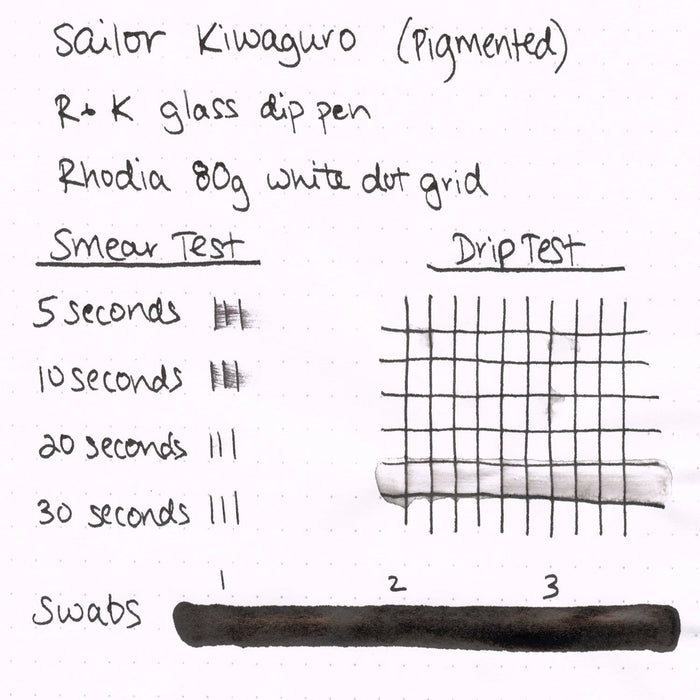 Sailor Kiwaguro (Pigmented)
R+K glass dip pen
Rhodia 80g white dot grid
Smear Test
5 seconds
10 seconds
20 seconds
30 seconds
Drip Test
1 2 3
Swabs